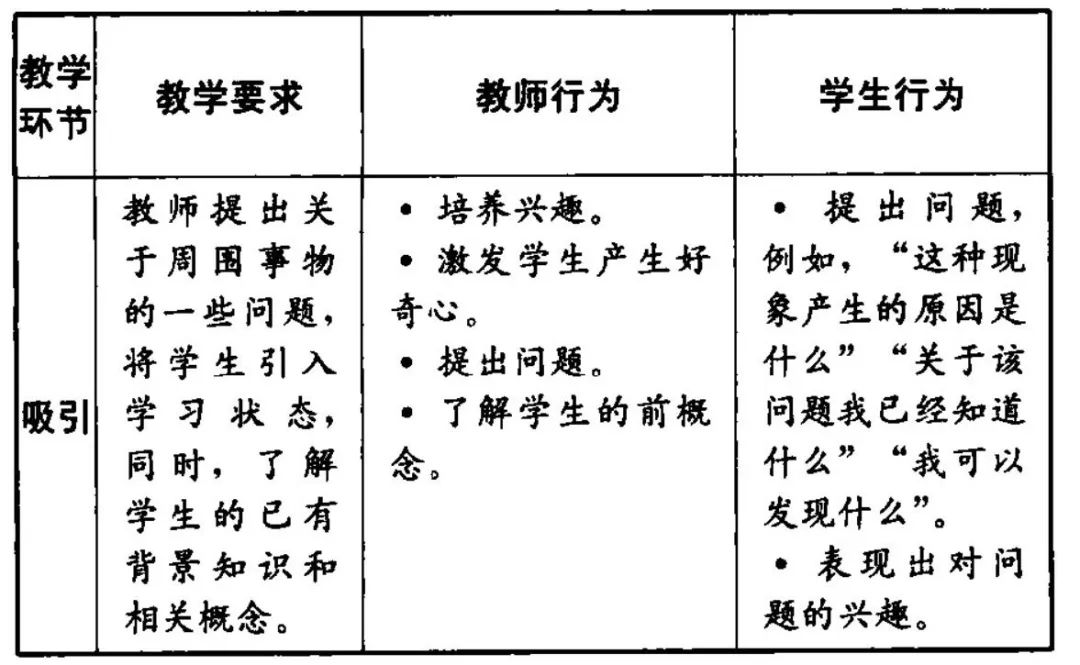 教学
环节
教学要求
教师行为
学生行为
吸引
教师提出关
于周围事物
的一些问题，
将学生引入
学习状态，
同时，了解
学生的已有
背景知识和
相关概念。
• 培养兴趣。
• 激发学生产生好
奇心。
• 提出问题。
• 了解学生的前概
念。
• 提出问题，
例如，“这种现
象产生的原因是
什么”“关于该
问题我已经知道
什么”“我可以
发现什么”。
• 表现出对问
题的兴趣。